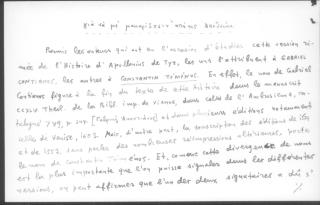 Parmi les auteurs qui ont eu l'occasion d'étudier cette version ri-
mée de l'Histoire d'Apollonius de Tyr, les uns l'attribuent à GABRIEL
CONTIANOS, les autres à CONSTANTIN. En effet, le nom de Gabriel
Contianos figure à la fin du texte de cette histoire dans le manuscrit
Theol. de la Bibl. imp. de Vienne, dans celui de l'Ambrosienne,
et dans plusieurs éditions notamment
celles de Venise, Mais, d'autre part, la souscription des éditions de
et de 1553, sans parler des nombreuses réimpressions ultérieures, porte
le nom de Constantin. Et, comme cette divergence de noms
est la plus importante que l'on puisse signaler dans les différentes
versions, on peut affirmer que l'un des deux signataires a dû s'